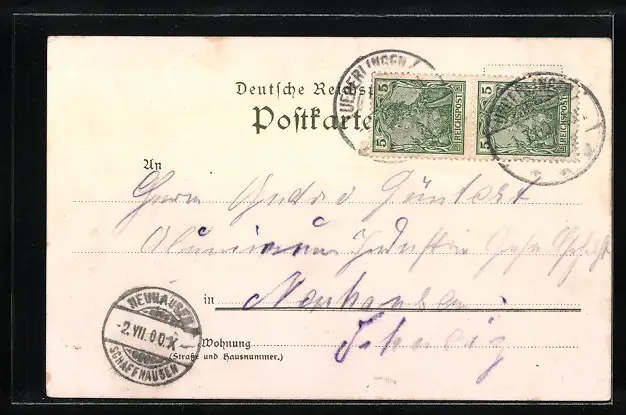 Deutsche Reichs
Postkarte
UEBERLINGEN
5 REICHSPOST 5
5 REICHSPOST 5
An
Herrn André Güntert
Aluminium Industrie Gesellschaft
in Neuhausen
Wohnung Schweiz
(Straße und Hausnummer.)
NEUHAUSEN
-2.VII.00.X-
SCHAFFHAUSEN